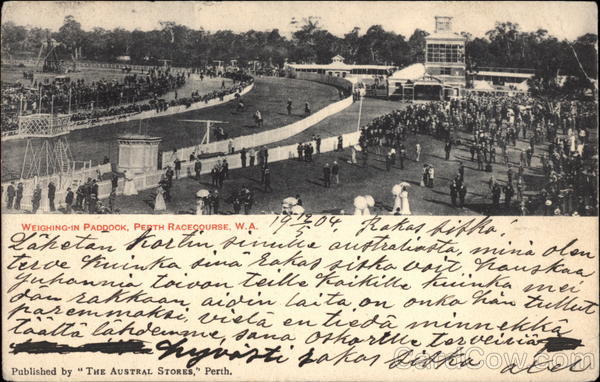 WEIGHING-IN PADDOCK, PERTH RACECOURSE, W.A.
04 Rakas Siska,
Lähetän kortin sinulle australiasta, minä olen
terve kuinka sinä rakas siska voit hauskaa
Juhannia toivon teille kaikille kuinka mei
dän rakkaan aidin laita on onko hän tullut
paremmaksi vielä en tiedä minnekka
täältä lähdemme, sano oskarille terveisiä
Hyvästi rakas siska
Published by "THE AUSTRAL STORES," Perth.
CardCow.com